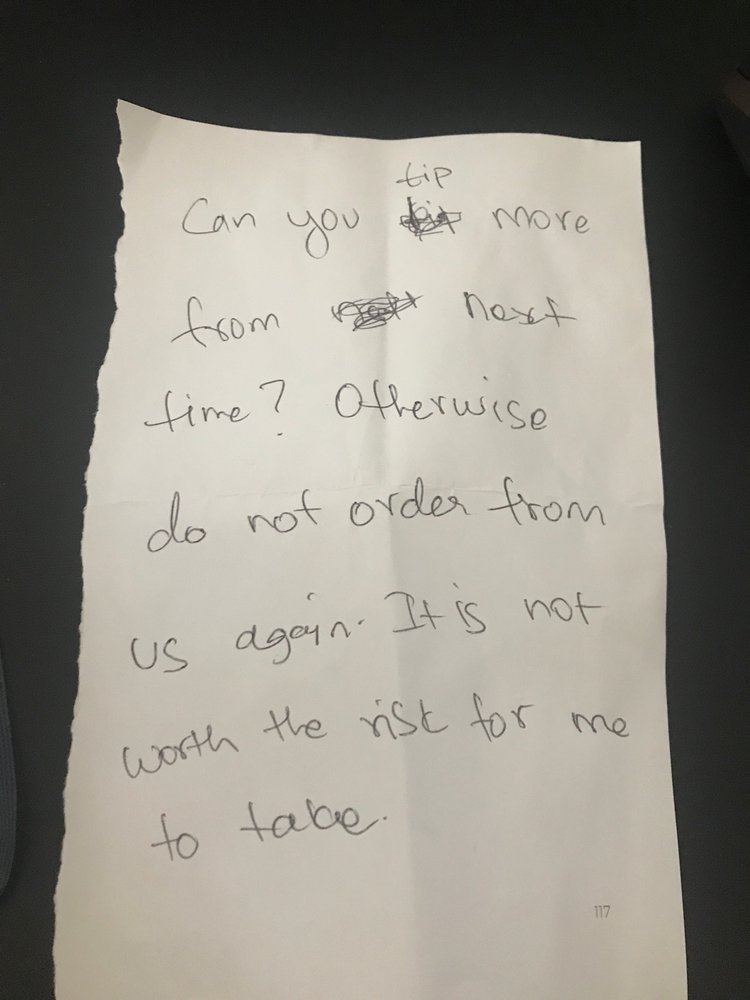 tip
Can you more
from next
time? Otherwise
do not order from
us again. It is not
worth the risk for me
to take.
117